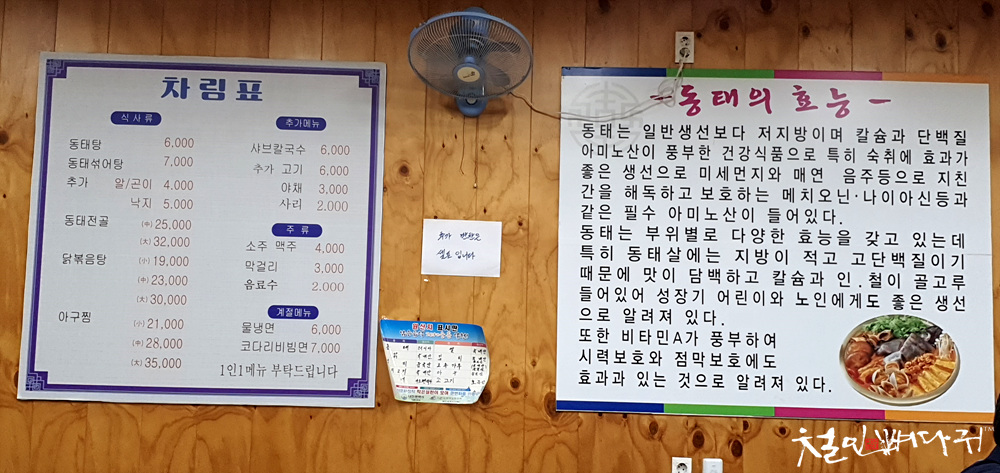 차림표
식사류
동태탕 6,000
동태섞어탕 7,000
추가 알/곤이 4.000
낙지 5.000
동태전골 (中) 25,000
(大) 32,000
닭볶음탕 (小) 19,000
(中) 23,000
(大) 30,000
아구찜 (小) 21,000
(中) 28,000
(大) 35,000
추가메뉴
샤브칼국수 6,000
추가 고기 6,000
야채 3,000
사리 2.000
주 류
소주 맥주 4,000
막걸리 3,000
음료수 2.000
계절메뉴
물냉면 6,000
코다리비빔면 7,000
1인1메뉴 부탁드립니다
추가 반찬은
셀프 입니다
원산지 표시판
-동태의 효능-
동태는 일반생선보다 저지방이며 칼슘과 단백질
아미노산이 풍부한 건강식품으로 특히 숙취에 효과가
좋은 생선으로 미세먼지와 매연 음주등으로 지친
간을 해독하고 보호하는 메치오닌·나이아신등과
같은 필수 아미노산이 들어있다.
동태는 부위별로 다양한 효능을 갖고 있는데
특히 동태살에는 지방이 적고 고단백질이기
때문에 맛이 담백하고 칼슘과 인.철이 골고루
들어있어 성장기 어린이와 노인에게도 좋은 생선
으로 알려져 있다.
또한 비타민A가 풍부하여
시력보호와 점막보호에도
효과과 있는 것으로 알려져 있다.
철민뼈다귀™